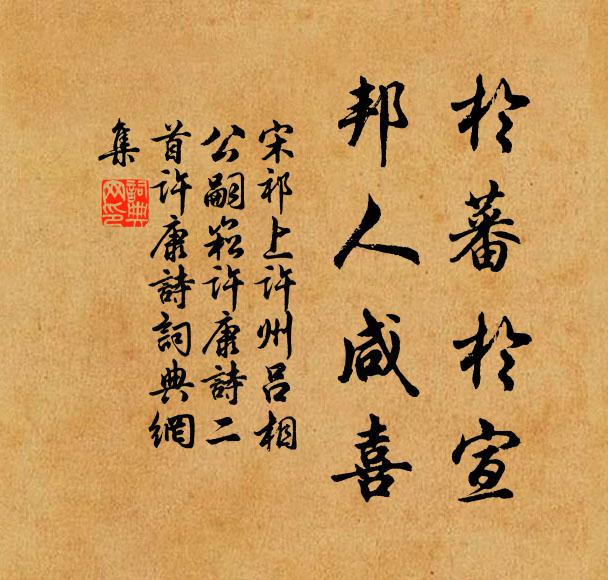 於蕃於宣
邦人咸喜
宋祁上許州呂相
公嗣崧許康詩二
首許康詩詞典網
集
詞典
网印